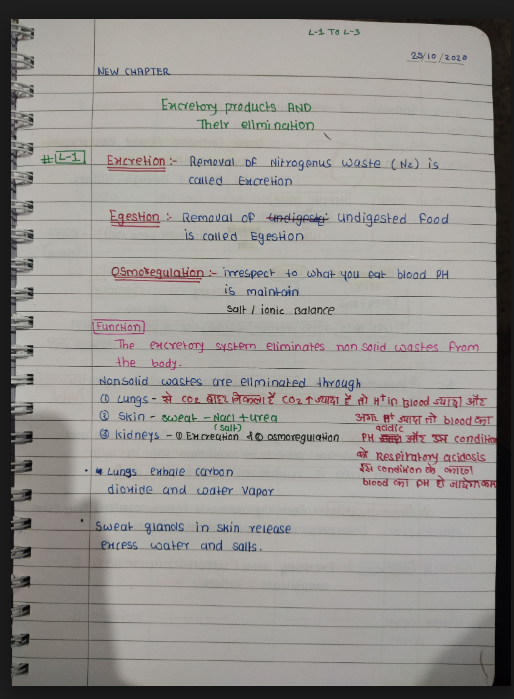 L-1 TO L-3
25/10/2020
NEW CHAPTER
Excretory products AND
Their elimination
# L-1 Excretion :- Removal of Nitrogenus waste (N2) is
called Excretion
Egestion :- Removal of undigested food
is called Egestion
Osmoregulation :- irrespect to what you eat blood PH
is maintain
salt / ionic Balance
Function
The excretory system eliminates non solid wastes from
the body.
Nonsolid wastes are eliminated through
(1) Lungs - से CO2 बाहर निकला है CO2 ↑ ज्यादा है तो H+ in Blood ज्यादा और
(2) Skin - sweat - Nacl + urea
(salt)
(3) kidneys - (1) Excreation (2) osmoregulation
अगर H+ ज्यादा तो blood का
acidic
PH और इस condition
को Respiratory acidosis
इस condition के कारण
blood का PH हो जायेगा कम
Lungs exhale carbon
dioxide and water vapor
Sweat glands in skin release
excess water and salts.